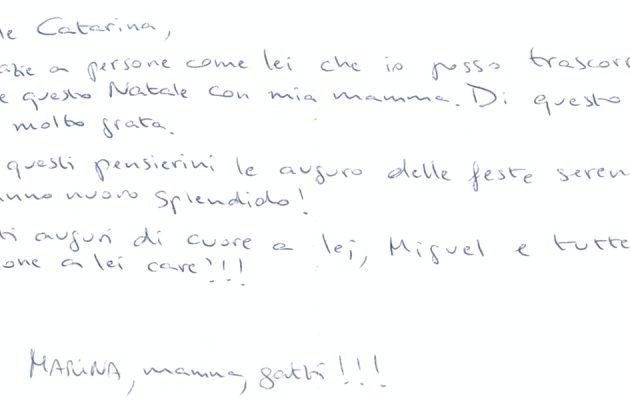 le Catarina,
azie a persone come lei che io posso trascorr
e questo Natale con mia mamma. Di questo
molto grata.
questi pensierini le auguro delle feste seren
anno nuovo splendido!
ti auguri di cuore a lei, Miguel e tutte
one a lei care!!!
MARINA, mamma, gatti!!!